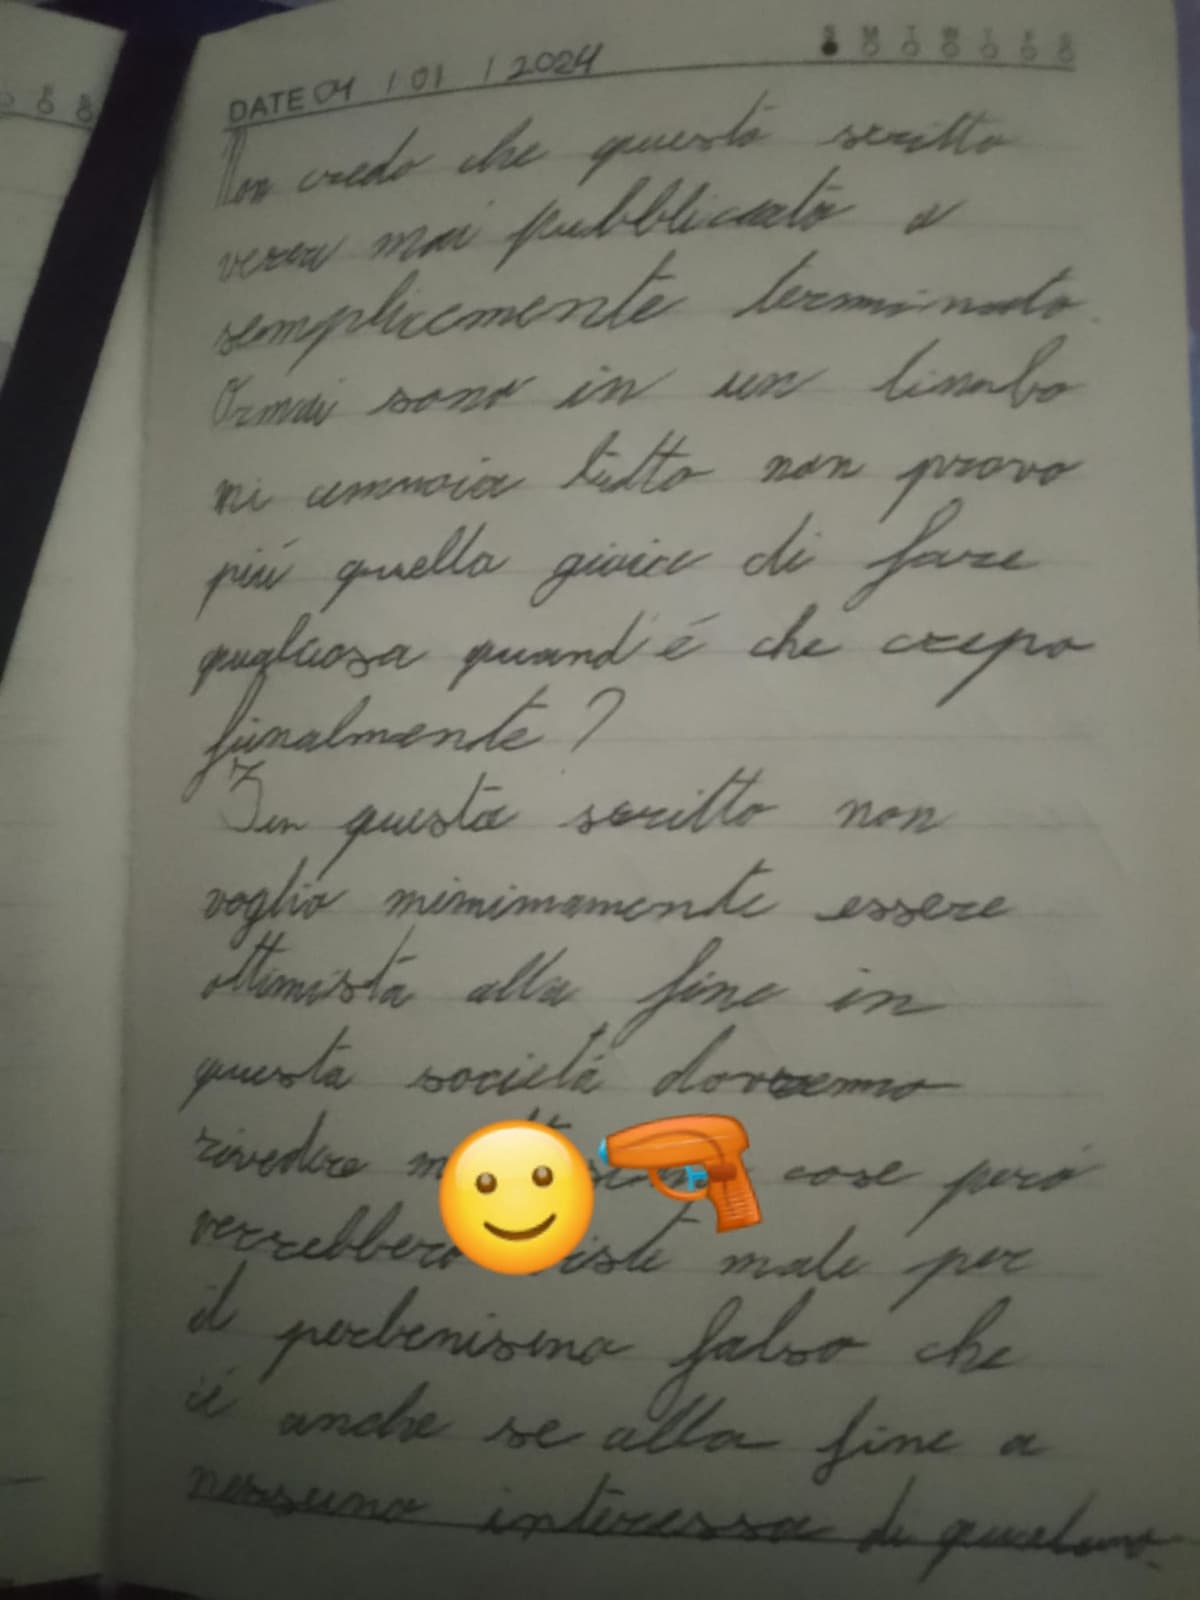 S M T W T F S
DATE 01 / 01 / 2024
Non credo che questo scritto
verrà mai pubblicato o
semplicemente terminato.
Ormai sono in un limbo
mi annoia tutto non provo
più quella gioia di fare
qualcosa quand'é che crepo
finalmente?
In questo scritto non
voglio minimamente essere
ottimista alla fine in
questa società dovremmo
rivedere cose peró
verrebbero viste male per
il perbenismo falso che
c'é anche se alla fine a
nessuno interessa di qualcuno.